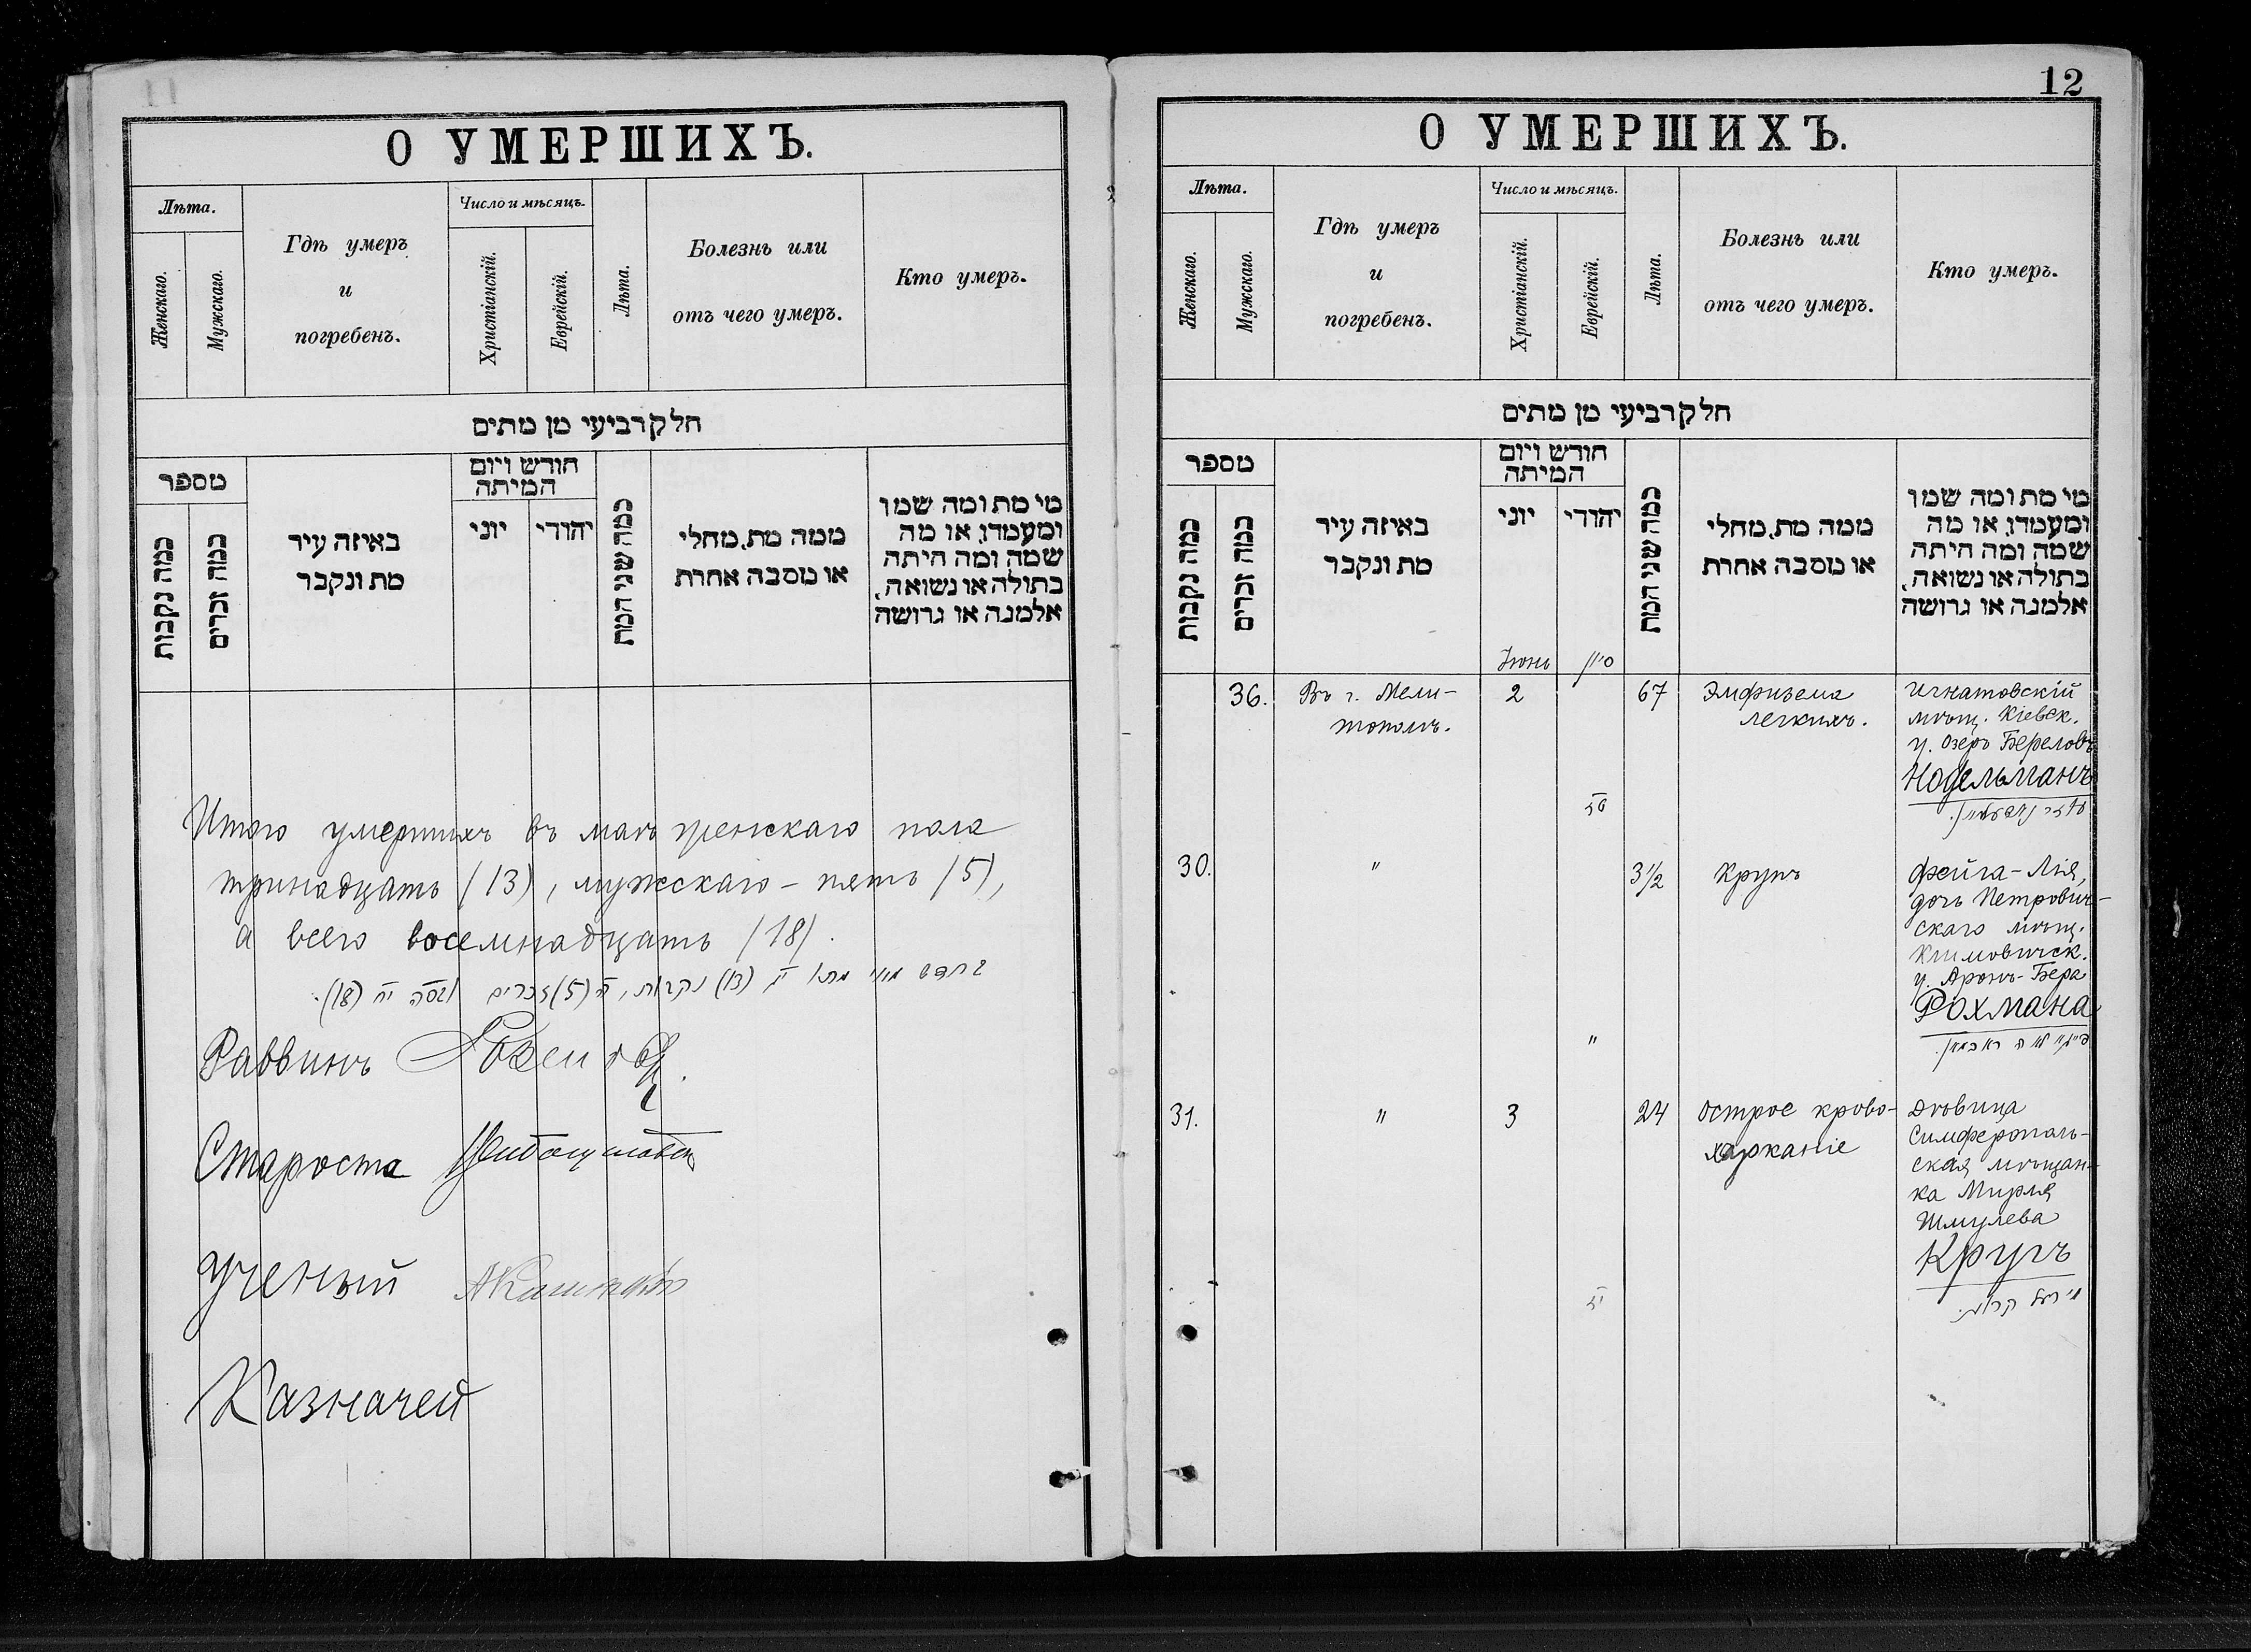 О УМЕРШИХЪ.
Лѣта.
Женскаго.
Мужскаго.
Гдѣ умеръ
и
погребенъ.
Число и мѣсяцъ.
Христіанскій.
Еврейскій.
Лѣта.
Болезнь или
отъ чего умеръ.
Кто умеръ.
חלק רביעי מן מתים
מספר
כמה נקבות
כמה זכרים
באיזה עיר
מת ונקבר
חודש ויום
המיתה
יוני
יהודי
כמה שני המת
ממה מת, מחלי
או מסבה אחרת
מי מת ומה שמו
ומעמדו, או מה
שמה ומה היתה
בתולה או נשואה,
אלמנה או גרושה
Итого умершихъ въ маѣ женскаго пола
тринадцать (13), мужскаго - пять (5),
а всего восемнадцать (18).
(13) נקבות, ה (5) זכרים יח (18).
Раввинъ
Староста
Ученый
Казначей
12
О УМЕРШИХЪ.
Лѣта.
Женскаго.
Мужскаго.
Гдѣ умеръ
и
погребенъ.
Число и мѣсяцъ.
Христіанскій.
Еврейскій.
Лѣта.
Болезнь или
отъ чего умеръ.
Кто умеръ.
חלק רביעי מן מתים
מספר
כמה נקבות
כמה זכרים
באיזה עיר
מת ונקבר
חודש ויום
המיתה
יוני
יהודי
כמה שני המת
ממה מת, מחלי
או מסבה אחרת
מי מת ומה שמו
ומעמדו, או מה
שמה ומה היתה
בתולה או נשואה,
אלמנה או גרושה
Іюнь סיון
36. Въ г. Мели-
тополѣ.
2
67
Эмфизема
легкихъ.
Игнатовскій
мѣщ. Кіевск.
у. Озеръ Береловъ
Нодельманъ
30. " 3½ Крупъ
Фейга-Лія,
дочь Петрович-
скаго мѣщ.
Климовичск.
у. Аронъ-Бера
Рохмана
"
31. " 3 24
Острое крово-
харканіе
Дѣвица
Симферополь-
ская мѣщан-
ка Мирля
Шмулева
Кругъ
מירל קרוג.